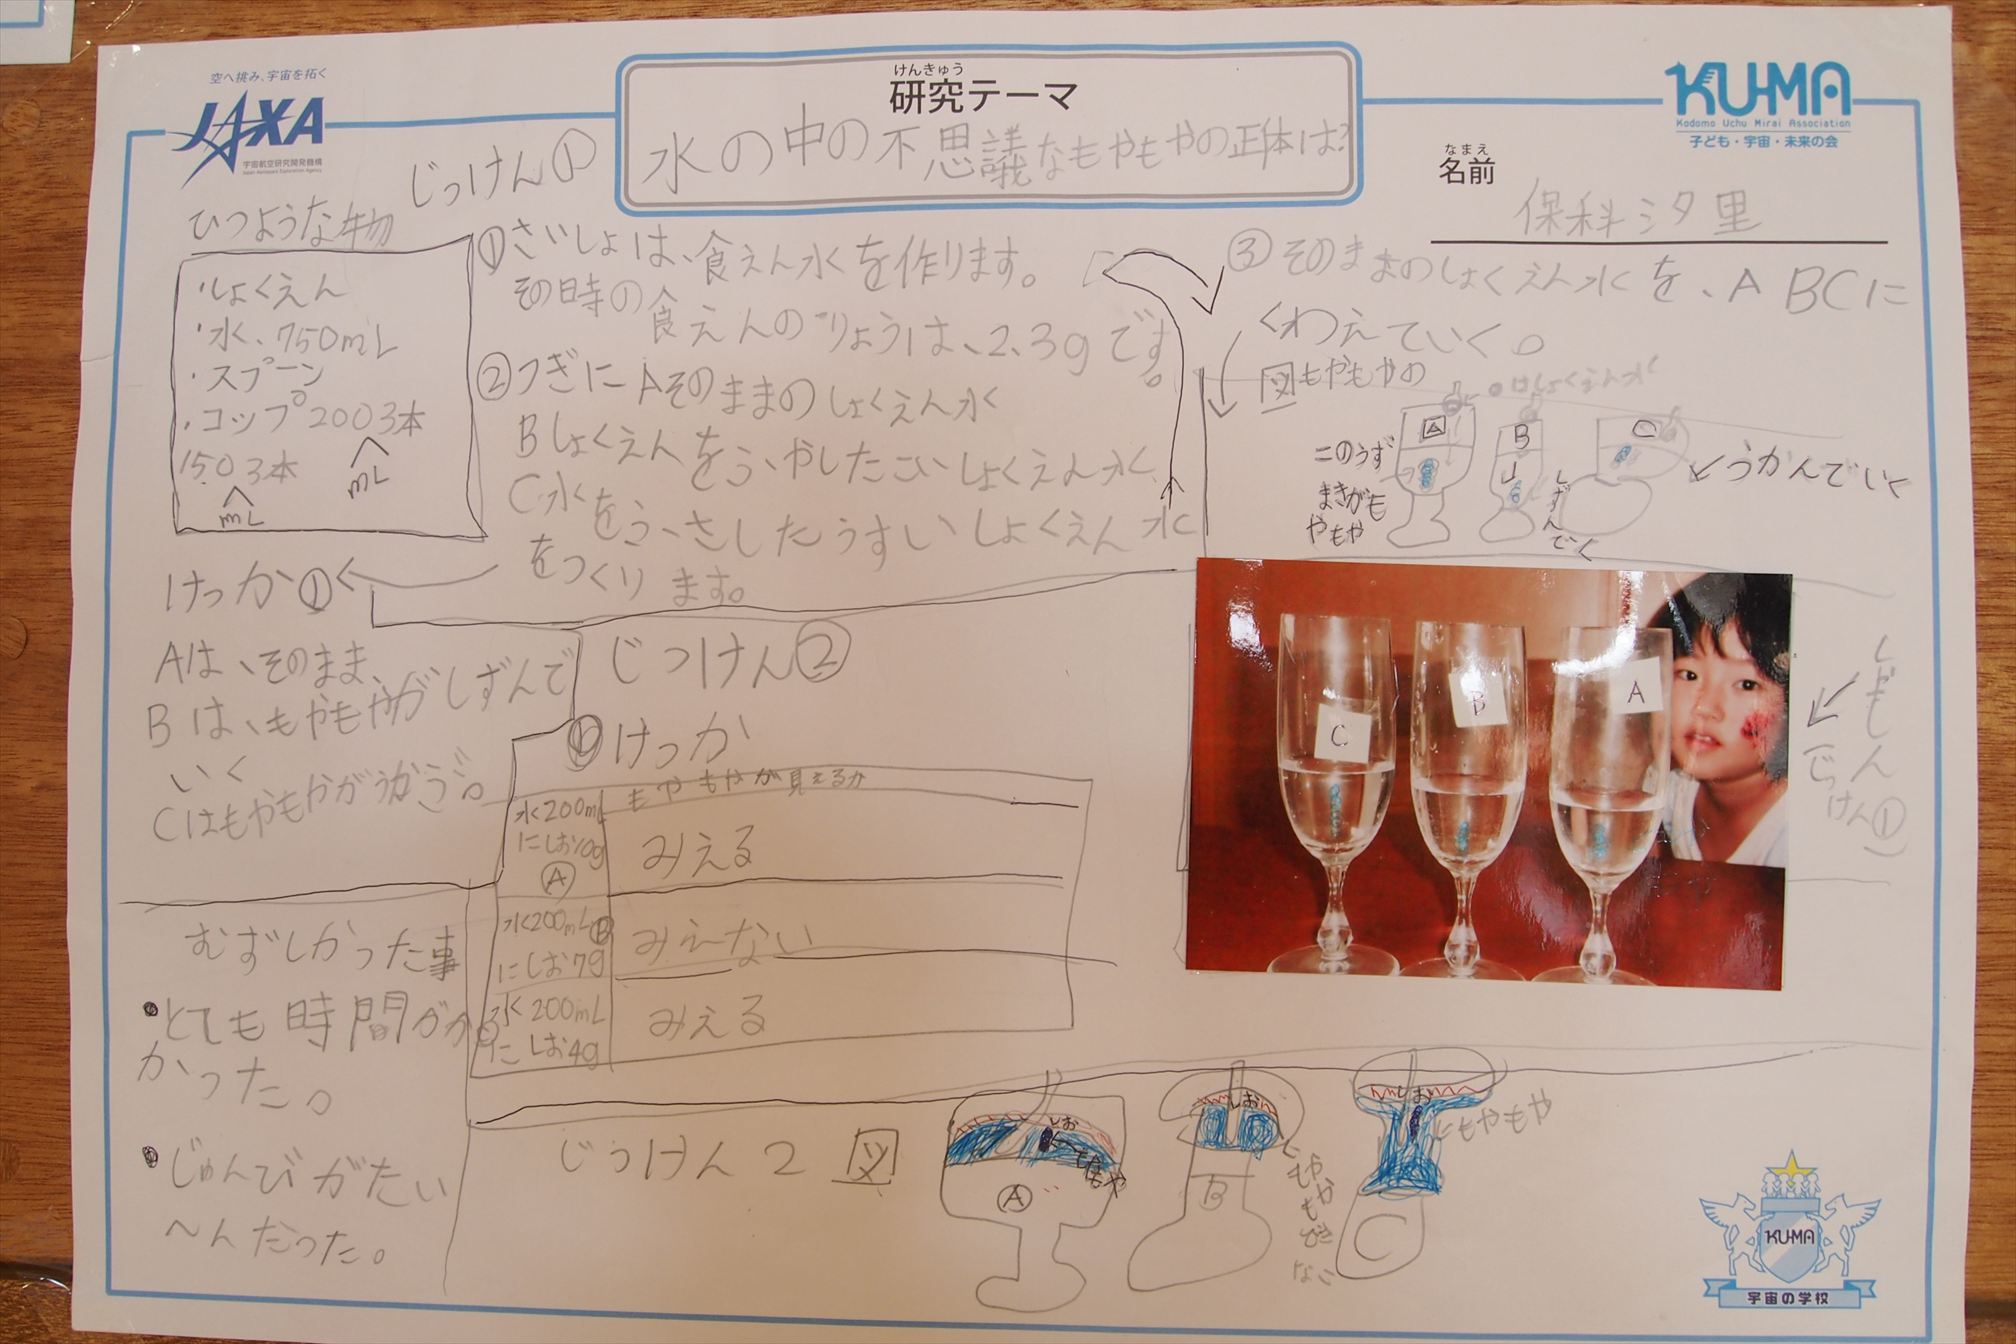 空へ挑み、宇宙を拓く
JAXA
宇宙航空研究開発機構
Japan Aerospace Exploration Agency
けんきゅう
研究テーマ
水の中の不思議なもやもやの正体は?
KU-MA
Kodomo Uchu Mirai Association
子ども・宇宙・未来の会
なまえ
名前
保科汐里
じっけん①
ひつような物
・しょくえん
・水、750mL
・スプーン
・コップ2003本
mL
1503本
mL
①さいしょは、食えん水を作ります。
その時の食えんのりょうは、2.3gです。
②つぎにAそのままのしょくえん水
Bしょくえんをふやしたこいしょくえん水
C水を
したうすいしょくえん水
をつくります。
③そのままのしょくえん水を、ABCに
くわえていく。
図もやもやの
はしょくえん水
A
B
C
このうず
まきがも
やもや
しずんでく
うかんでいく
けっか①
Aは、そのまま、
Bは、もやもやがしずんで
いく
Cはもやもやがうかぶ。
じっけん②
けっか
もやもやが見えるか
水200mL
にしお10g
A
みえる
水200mL B
にしお7g
みえない
水200mL
にしお4g
みえる
C
B
A
じっけん①
むずしかった事
・とても時間がか
かった。
・じゅんびがたい
へんだった。
じっけん2 図
しお
もやもや
A
しお
B
しお
もやもや
C
KU-MA
宇宙の学校